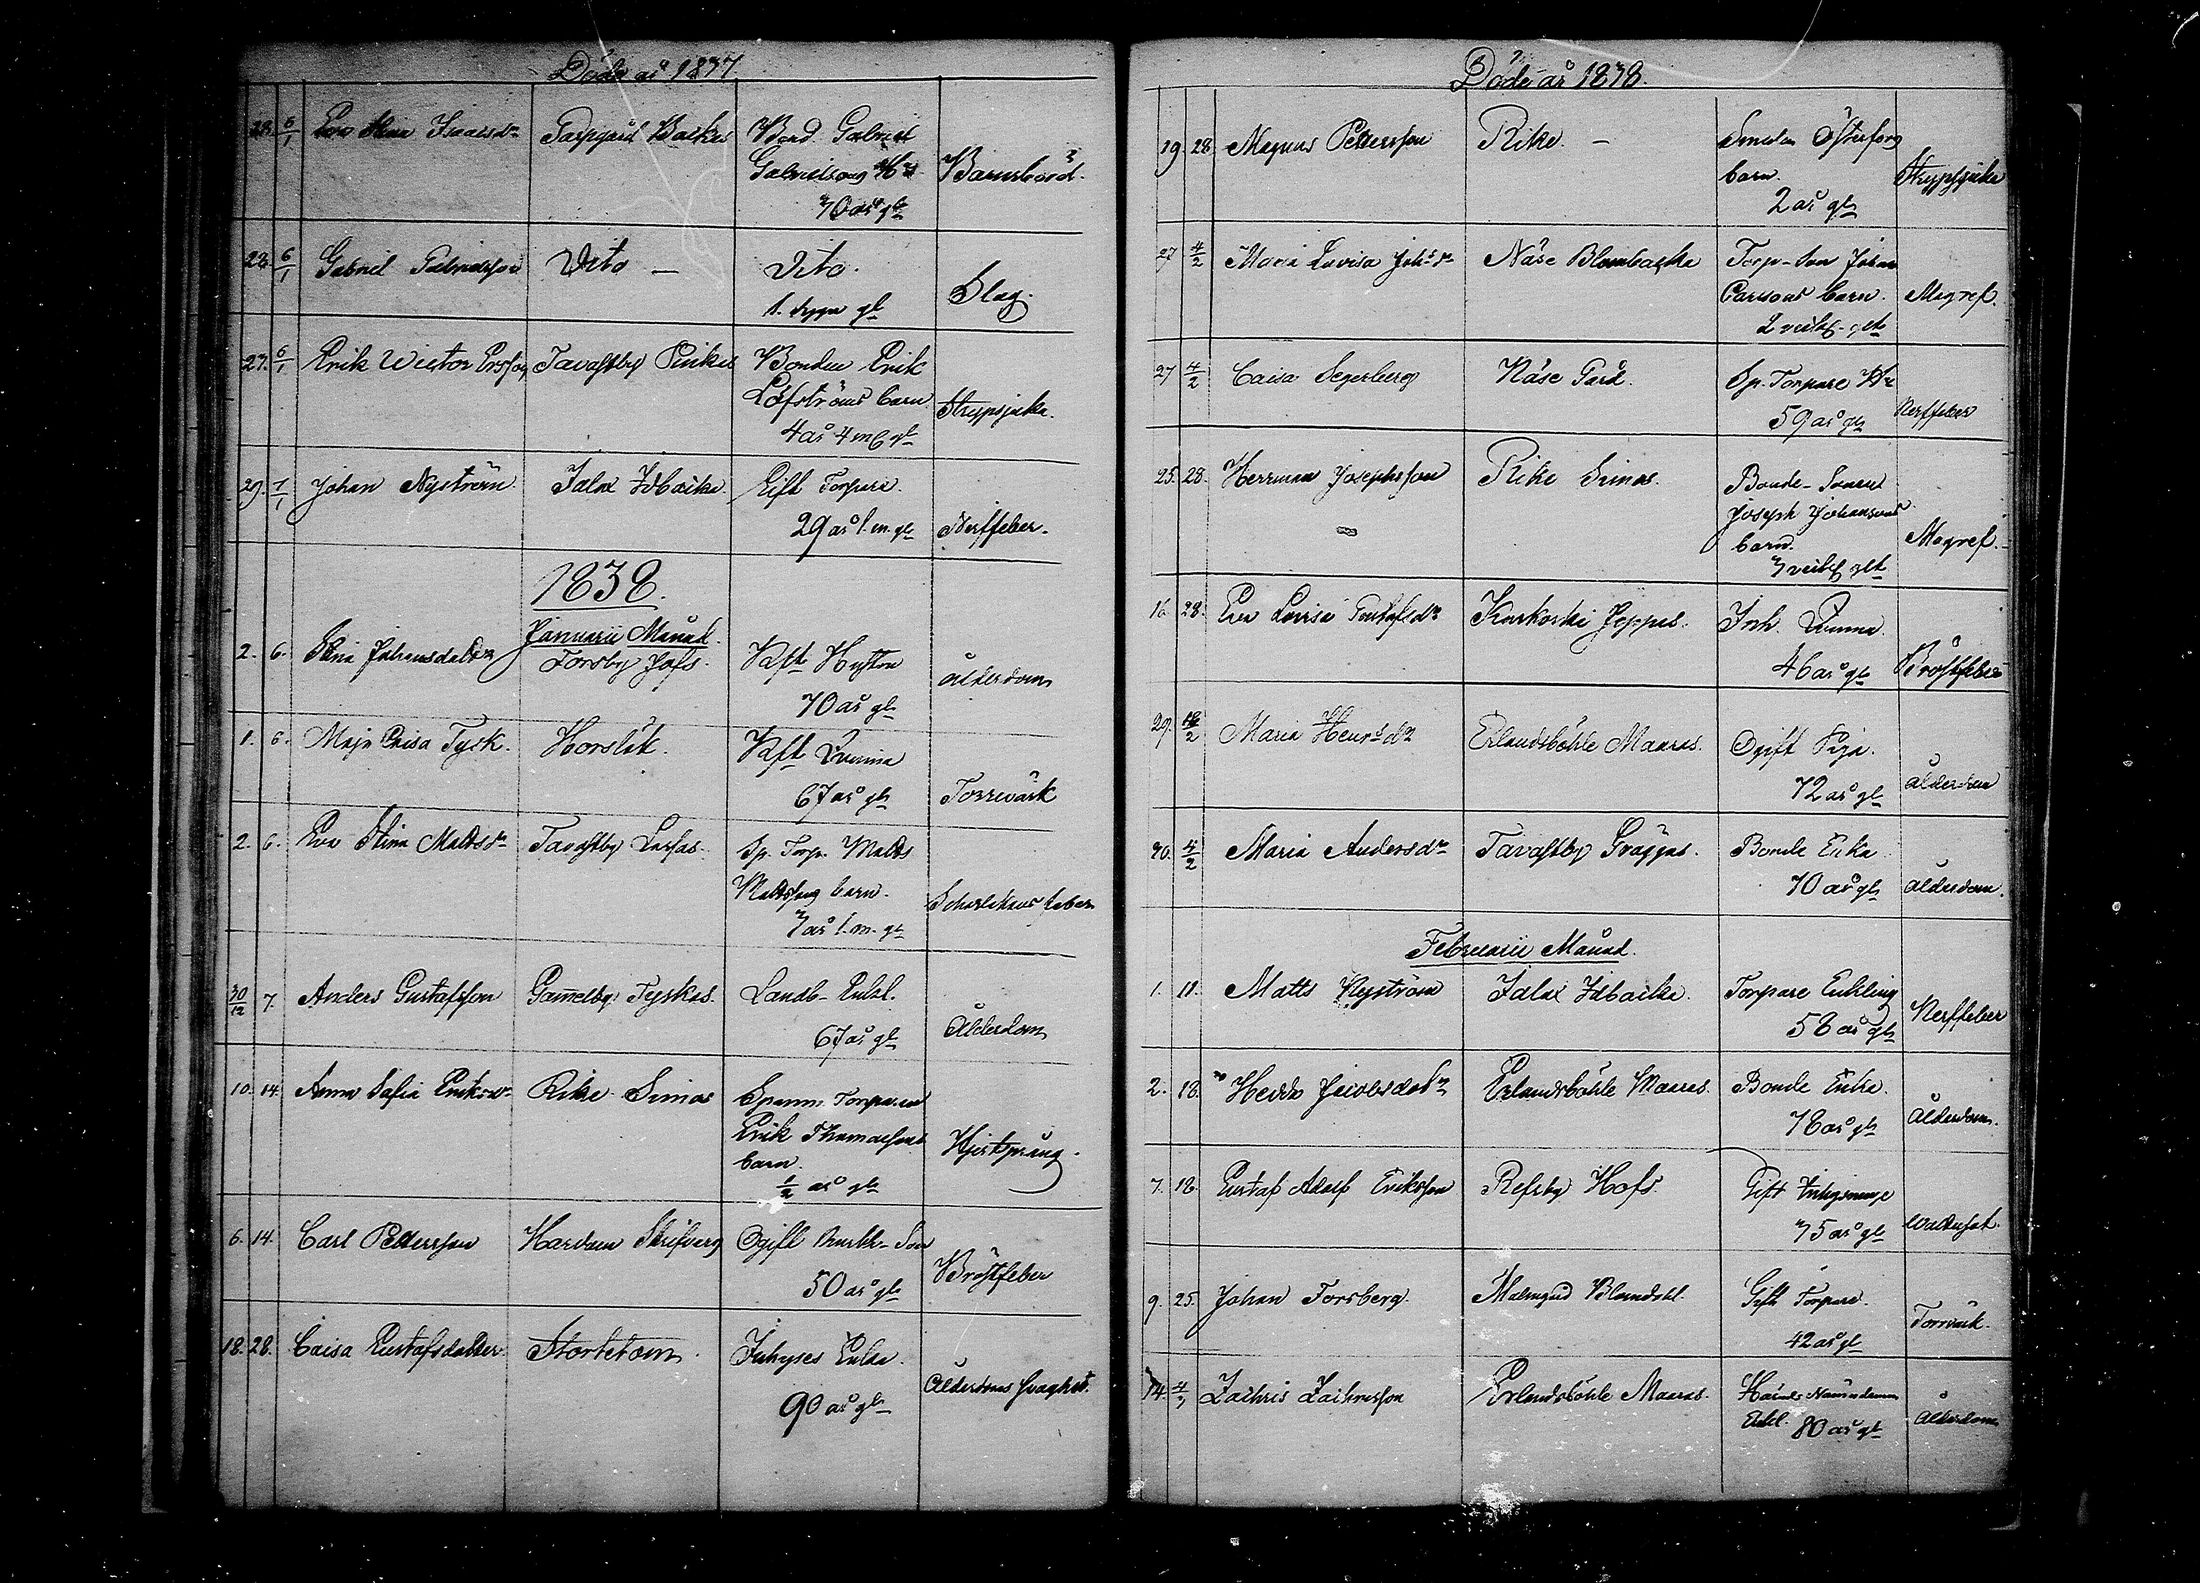 Döde år 1837.
28. 6/1 Eva Stina Isaacsdr Backas Bond. Gabriel
Gabrielsons Hu Barnsbörd.
år gl
28. 6/1 Gabriel Gabrielsson Dito — Dito.
1. gl Slag.
27. 6/1 Erik Victor Ersson Tavastby Bonden Erik
Löfströms barn Strypsjuka.
4 år 4 m gl
29. 7/1 Johan Nyström Idbacka Gift Torpare.
29 år 1. m. gl Nerffeber.
1838.
Januarii Månad.
2. 6. Stina Johansdotter Forsby Jofs. Hustru
70 år gl ålderdom
1. 6. Maja Caisa Tysk. Horslök. Qvinna
67 år gl Torrvärk
2. 6. Eva Stina Mattsdr Tavastby Larsas. Sp. Torp. Matts
Mattssons barn. Scharlakans feber
7 år 1. m. gl
30/12 7. Anders Gustafsson Gammelby Tyskas. Landb- Enkl.
67 år gl Ålderdom
10. 14. Anna Sofia Eriksdr Rike Simos Spanm. Torparen
Erik Thomassons
barn. Hjertsprång.
1/2 år gl
6. 14. Carl Pettersson Hardom Skrifvars Ogift Son
50 år gl Bröstfeber
18. 28. Caisa Gustafsdotter Stortetom. Inhyses Enka.
90 år gl Ålderdoms svaghet.
Döde år 1838.
19. 28. Magnus Pettersson Rike. — Smeden Österfors
barn. Strypsjuka
2 år gl
27 4/2 Maria Lovisa Johsdr Näse Blombacka Torp- Son Johan
Carlsons barn. Magref.
2 veck. glt
27 4/2 Caisa Segerberg Näse Gård. Sp. Torpare Hu
59 år gl Nerffeber
25. 28. Herrman Josephsson Rike Simos. Bonde- Sonen
Joseph Johansons
barn. Magref.
7 veck glt
16 28. Eva Lovisa Gustafsdr Kuskoski Jeppas. Inh. Qvinna.
46 år gl Bröstfeber
29. 18/2 Maria Henrsdr Erlandsböhle Maaras. Ogift Piga.
72 år gl ålderdom
30. 4/2 Maria Andersdr Tavastby Gräggas. Bonde Enka
70 år gl ålderdom.
Februarii Månad.
1. 11. Matts Nyström Idbacka. Torpare Enkling
58 år gl Nerffeber
2. 18. Hedda Jacobsdotr Erlandsböhle Maaras. Bonde Enka.
78 år gl Ålderdom.
7. 18. Gustaf Adolf Eriksson Refsby Hofs. Gift
75 år gl Wattusot.
9. 25. Johan Forsberg. Malmgård Gift Torpare.
42 år gl Torrvärk.
14. 4/3 Zachris Zachrisson Erlandsböhle Maaras.
Enkl. 80 år gl Ålderdom